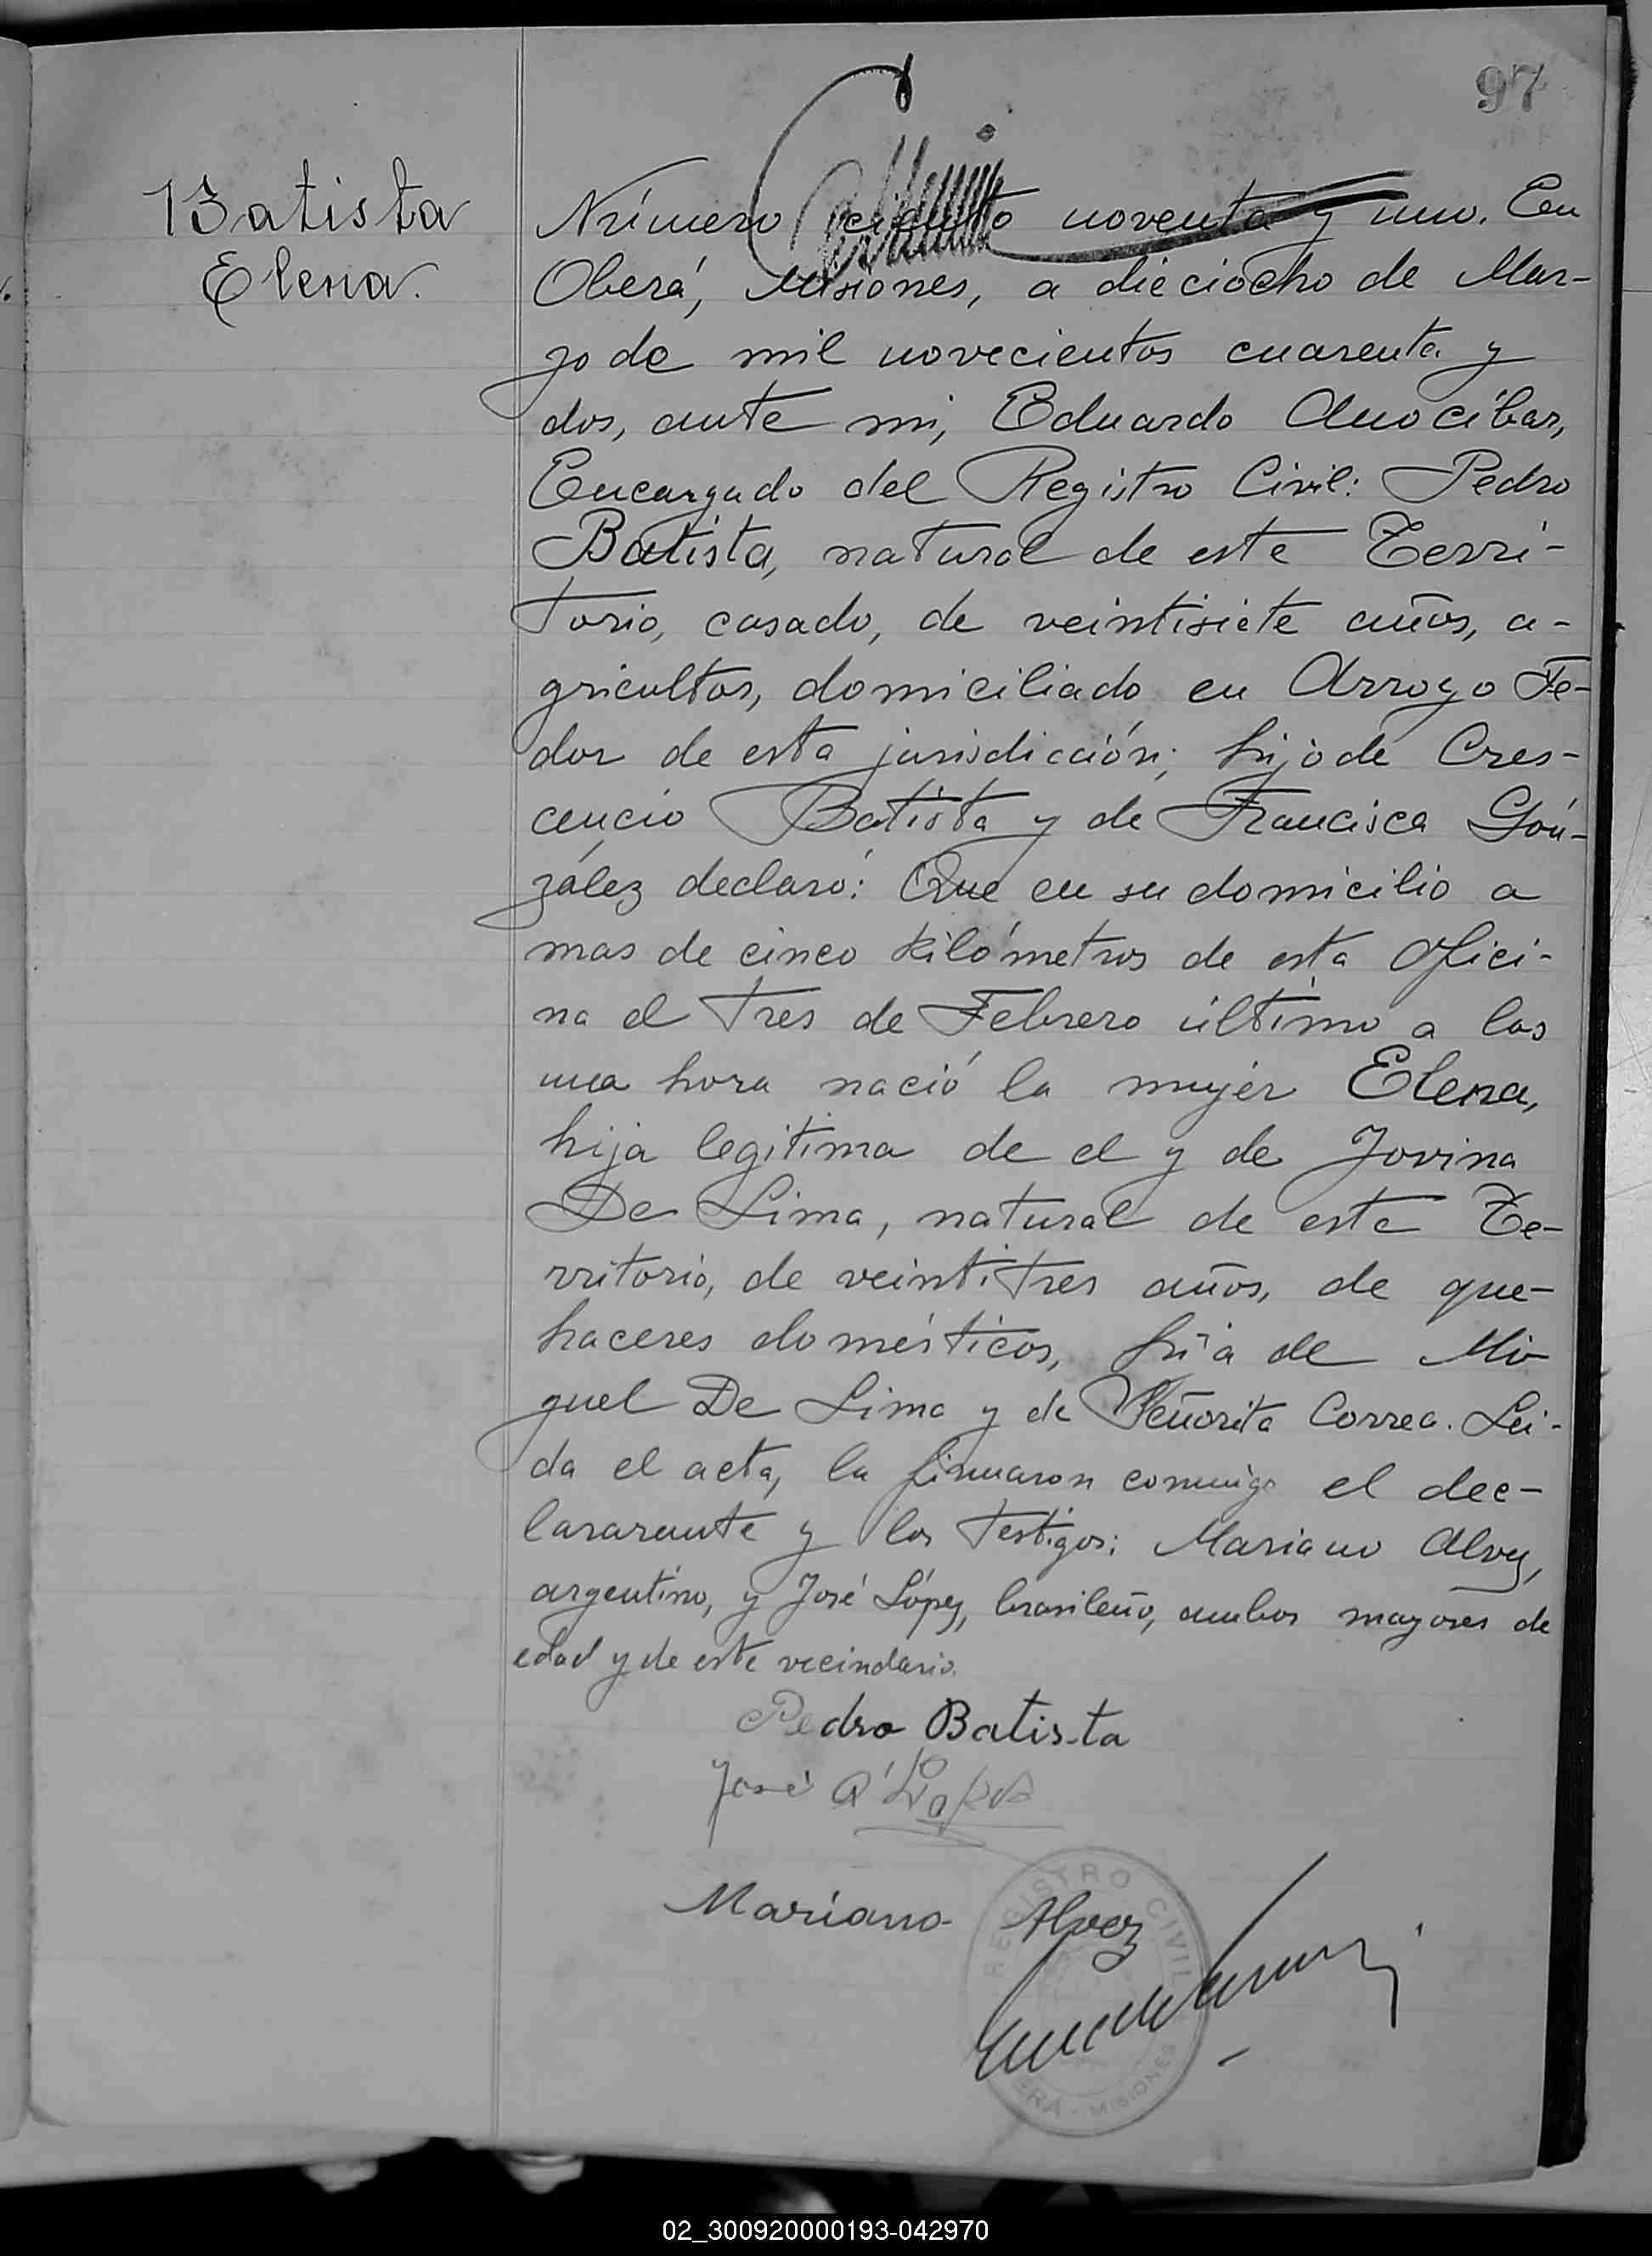 97
Batista
Elena.
Número ciento noventa y uno. En
Oberá, Misiones, a dieciocho de Mar-
zo de mil novecientos cuarenta y
dos, ante mi, Eduardo Anocíbar,
Encargado del Registro Civil: Pedro
Batista, natural de este Terri-
torio, casado, de veintisiete años, a-
gricultor, domiciliado en Arroyo Fe-
dor de esta jurisdicción; hijo de Cres-
cencio Batista y de Francisca Gón-
zález declaró: Que en su domicilio a
mas de cinco kilómetros de esta Ofici-
na el tres de Febrero último a las
una hora nació la mujer Elena,
hija legitima de el y de Jovina
De Lima, natural de este Te-
rritorio, de veintitres años, de que-
haceres domésticos, hija de Mi-
guel De Lima y de Señorita Correa. Lei-
da el acta, la firmaron conmigo el dec-
lararante y los testigos: Mariano Alvez,
argentino, y José López, brasileño, ambos mayores de
edad y de este vecindario.
Pedro Batista
José
Mariano Alvez
REGISTRO CIVIL
MISIONES
02_300920000193-042970